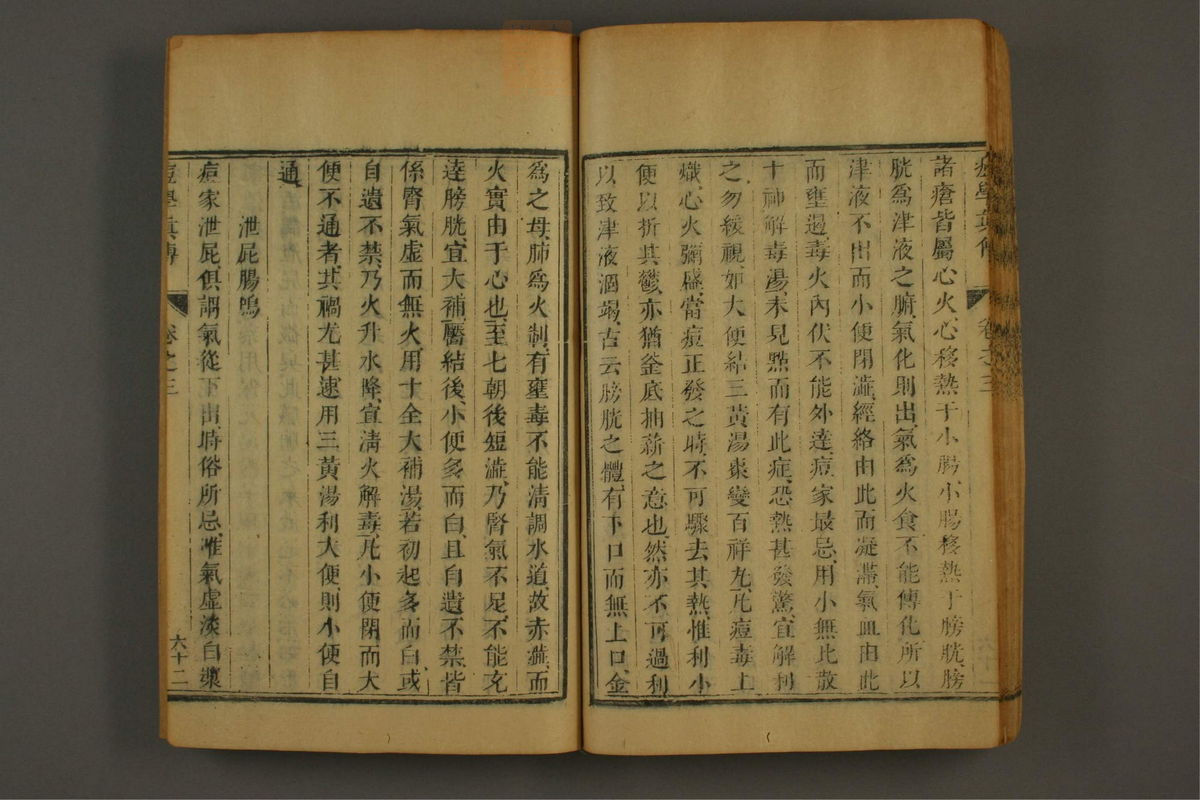 痘學真傳 卷之三
諸瘡皆屬心火、心移熱于小腸、小腸移熱于膀胱、膀
胱爲津液之腑、氣化則出、氣爲火食、不能傳化、所以
津液不出而小便閉澁、經絡由此而凝滯、氣血由此
而壅遏、毒火內伏不能外達、痘家最忌、用小無比散
十神解毒湯、未見㸃而有此症、恐熱甚發驚、宜解利
之勿緩視、如大便結三黃湯棗變百祥丸、凡痘毒上
熾、心火彌盛、當痘正發之時、不可驟去其熱、惟利小
便以折其鬱、亦猶釜底抽薪之意也、然亦不可過利
以致津液涸竭、古云膀胱之體、有下口而無上口、金
爲之母、肺爲火制、有壅毒不能清調水道、故赤澁、而
火實由于心也、至七朝後短澁、乃腎氣不足、不能充
達膀胱、宜大補、靨結後、小便多而白、且自遺不禁、皆
係腎氣虛而無火、用十全大補湯、若初起多而白、或
自遺不禁、乃火升水降、宜清火解毒、凡小便閉而大
便不通者、其禍尤甚、速用三黃湯利大便、則小便自
通、
泄屁腸鳴
痘家泄屁俱謂氣從下出、時俗所忌、惟氣虛淡白漿
痘學真傳 卷之三 六十二